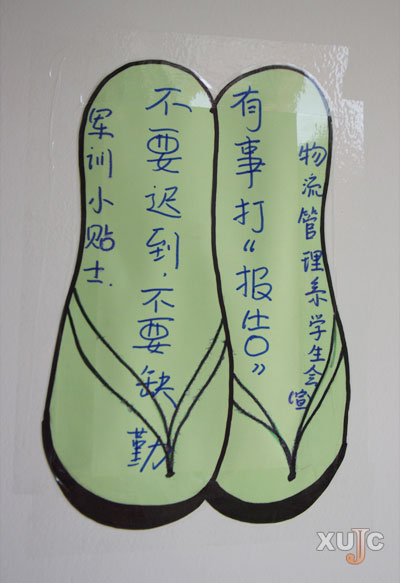 军训小贴士.
不要迟到.不要缺勤
有事打“报告”
物流管理系学生会 宣
XUJC